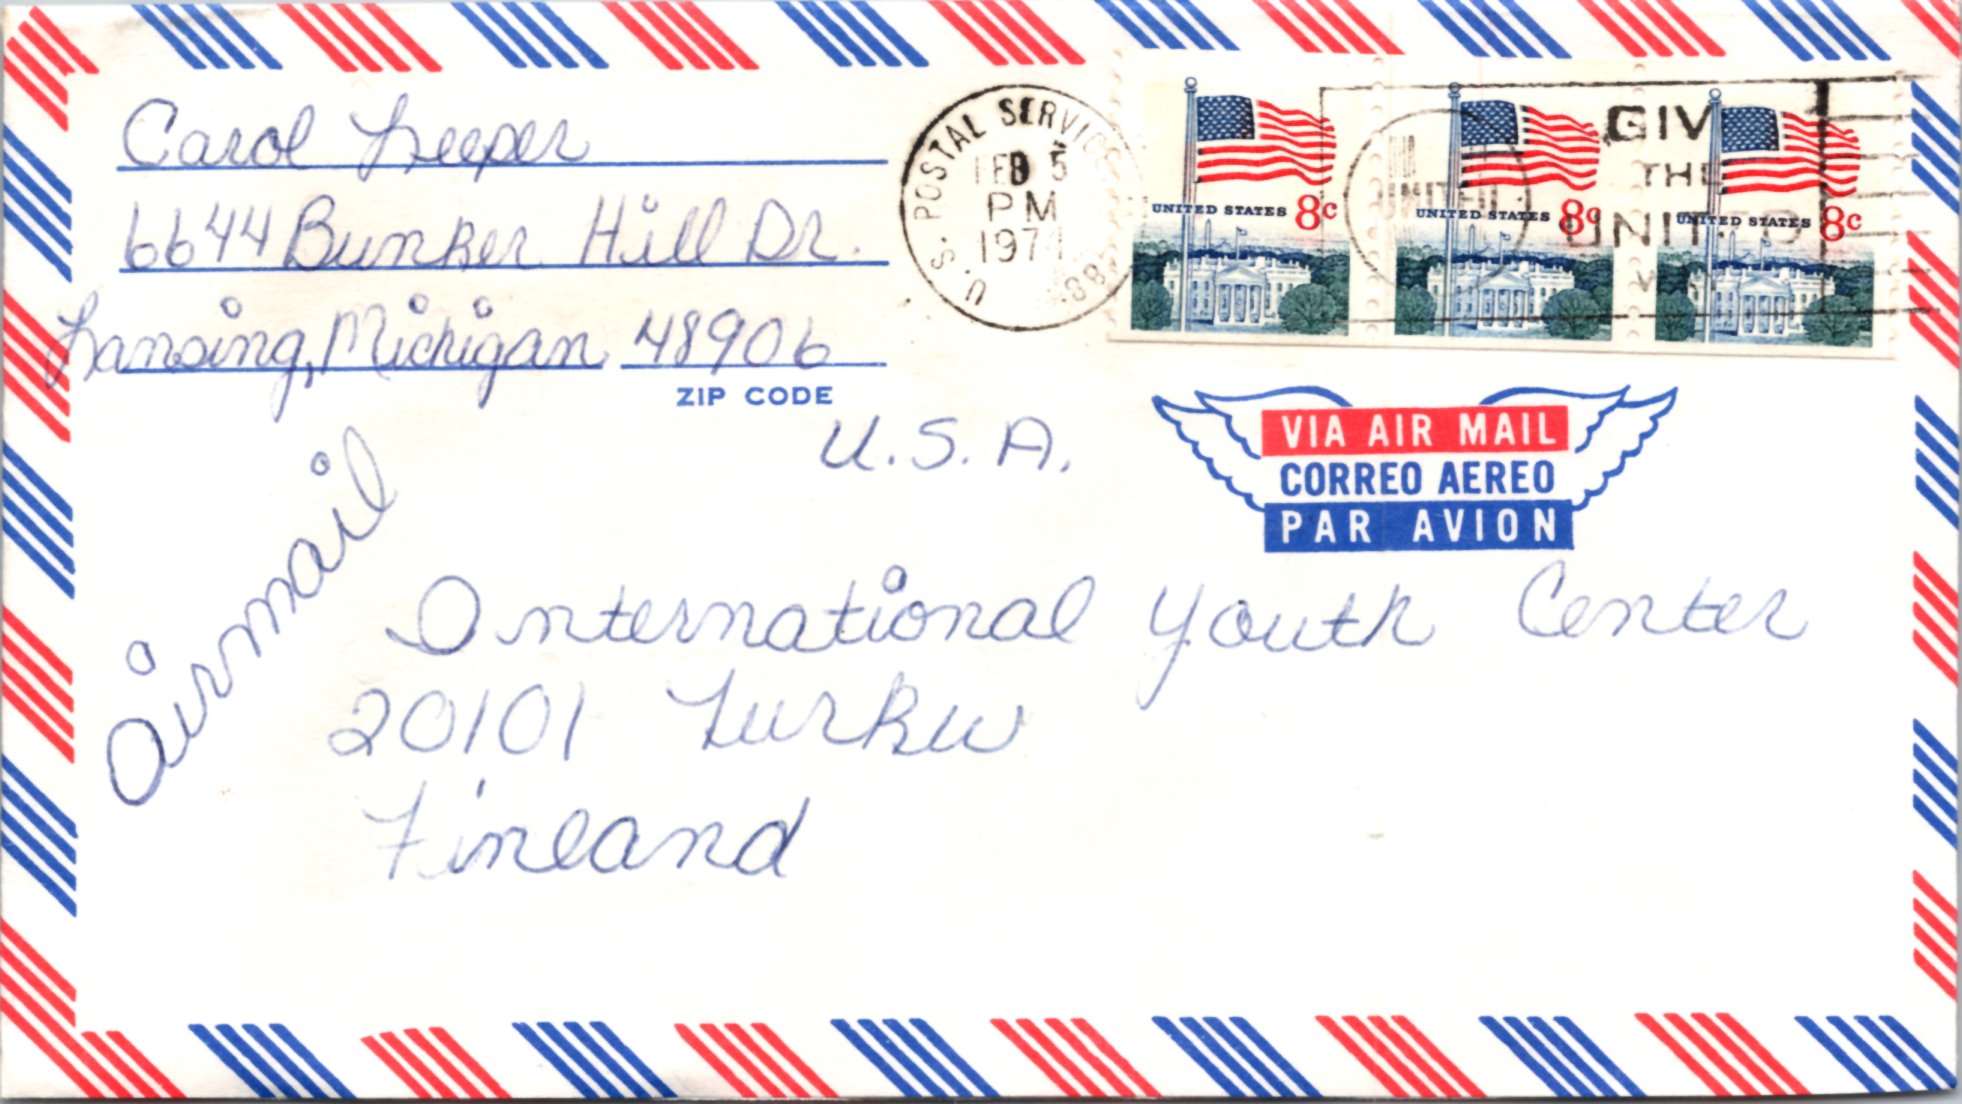 Carol Leeper
6644 Bunker Hill Dr.
Lansing, Michigan 48906
ZIP CODE
U.S.A.
U.S. POSTAL SERVICE
FEB 5
PM
1971
UNITED STATES 8c
UNITED STATES 8c
UNITED STATES 8c
GIV
THE
UNITED
VIA AIR MAIL
CORREO AEREO
PAR AVION
Airmail
International Youth Center
20101 Turku
Finland